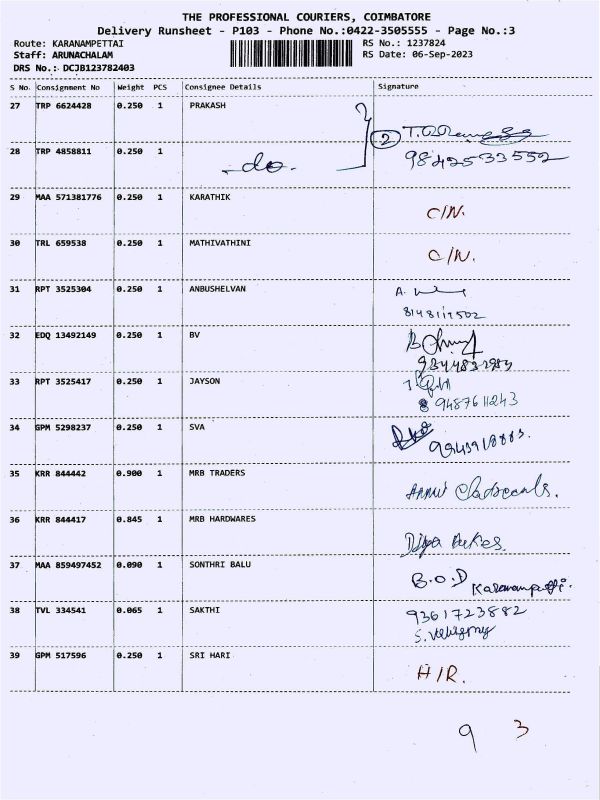 THE PROFESSIONAL COURIERS, COIMBATORE
Delivery Runsheet - P103 - Phone No.:0422-3505555 - Page No.:3
Route: KARANAMPETTAI RS No.: 1237824
Staff: ARUNACHALAM RS Date: 06-Sep-2023
DRS No.: DCJB123782403
S No. Consignment No Weight PCS Consignee Details Signature
27 TRP 6624428 0.250 1 PRAKASH
2
28 TRP 4858811 0.250 1 -do- 9842533552
29 MAA 571381776 0.250 1 KARATHIK
C/N.
30 TRL 659538 0.250 1 MATHIVATHINI
C/N.
31 RPT 3525304 0.250 1 ANBUSHELVAN
A.
32 EDQ 13492149 0.250 1 BV
33 RPT 3525417 0.250 1 JAYSON
9487611243
34 GPM 5298237 0.250 1 SVA
35 KRR 844442 0.900 1 MRB TRADERS
36 KRR 844417 0.845 1 MRB HARDWARES
37 MAA 859497452 0.090 1 SONTHRI BALU
B.O.D
38 TVL 334541 0.065 1 SAKTHI 9361723882
39 GPM 517596 0.250 1 SRI HARI
H/R.
9 3